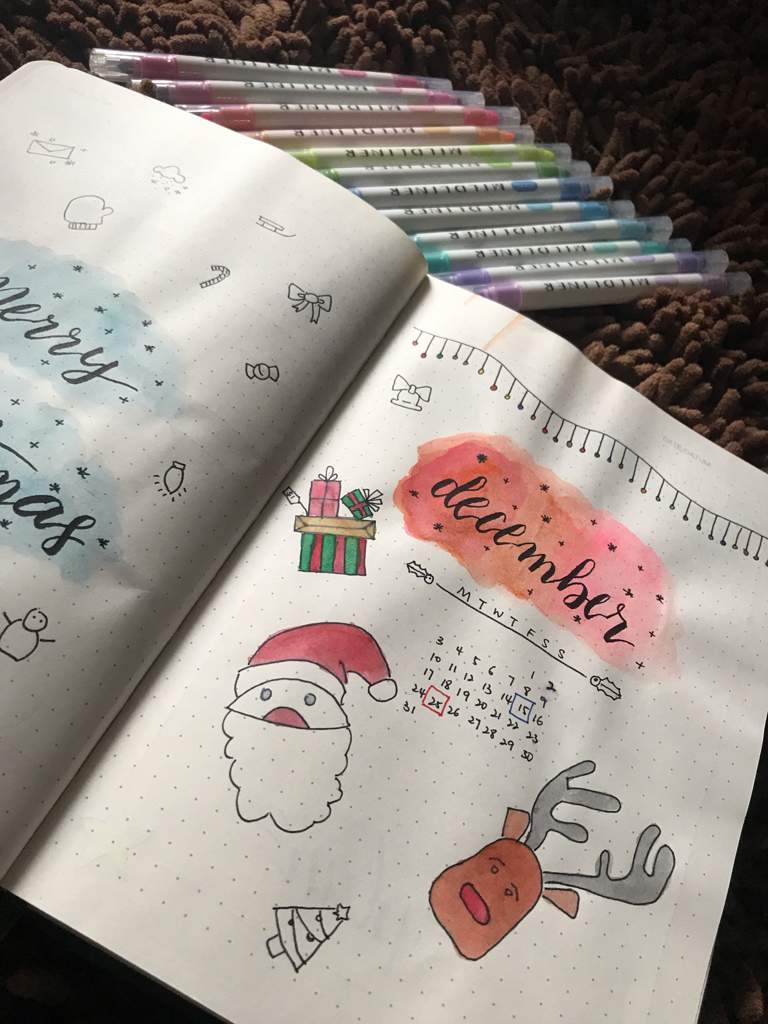 MILDLINER
MILDLINER
MILDLINER
MILDLINER
MILDLINER
MILDLINER
MILDLINER
MILDLINER
MILDLINER
MILDLINER
MILDLINER
MILDLINER
merry
mas
december
M T W T F S S
1 2
3 4 5 6 7 8 9
10 11 12 13 14 15 16
17 18 19 20 21 22 23
24 25 26 27 28 29 30
31